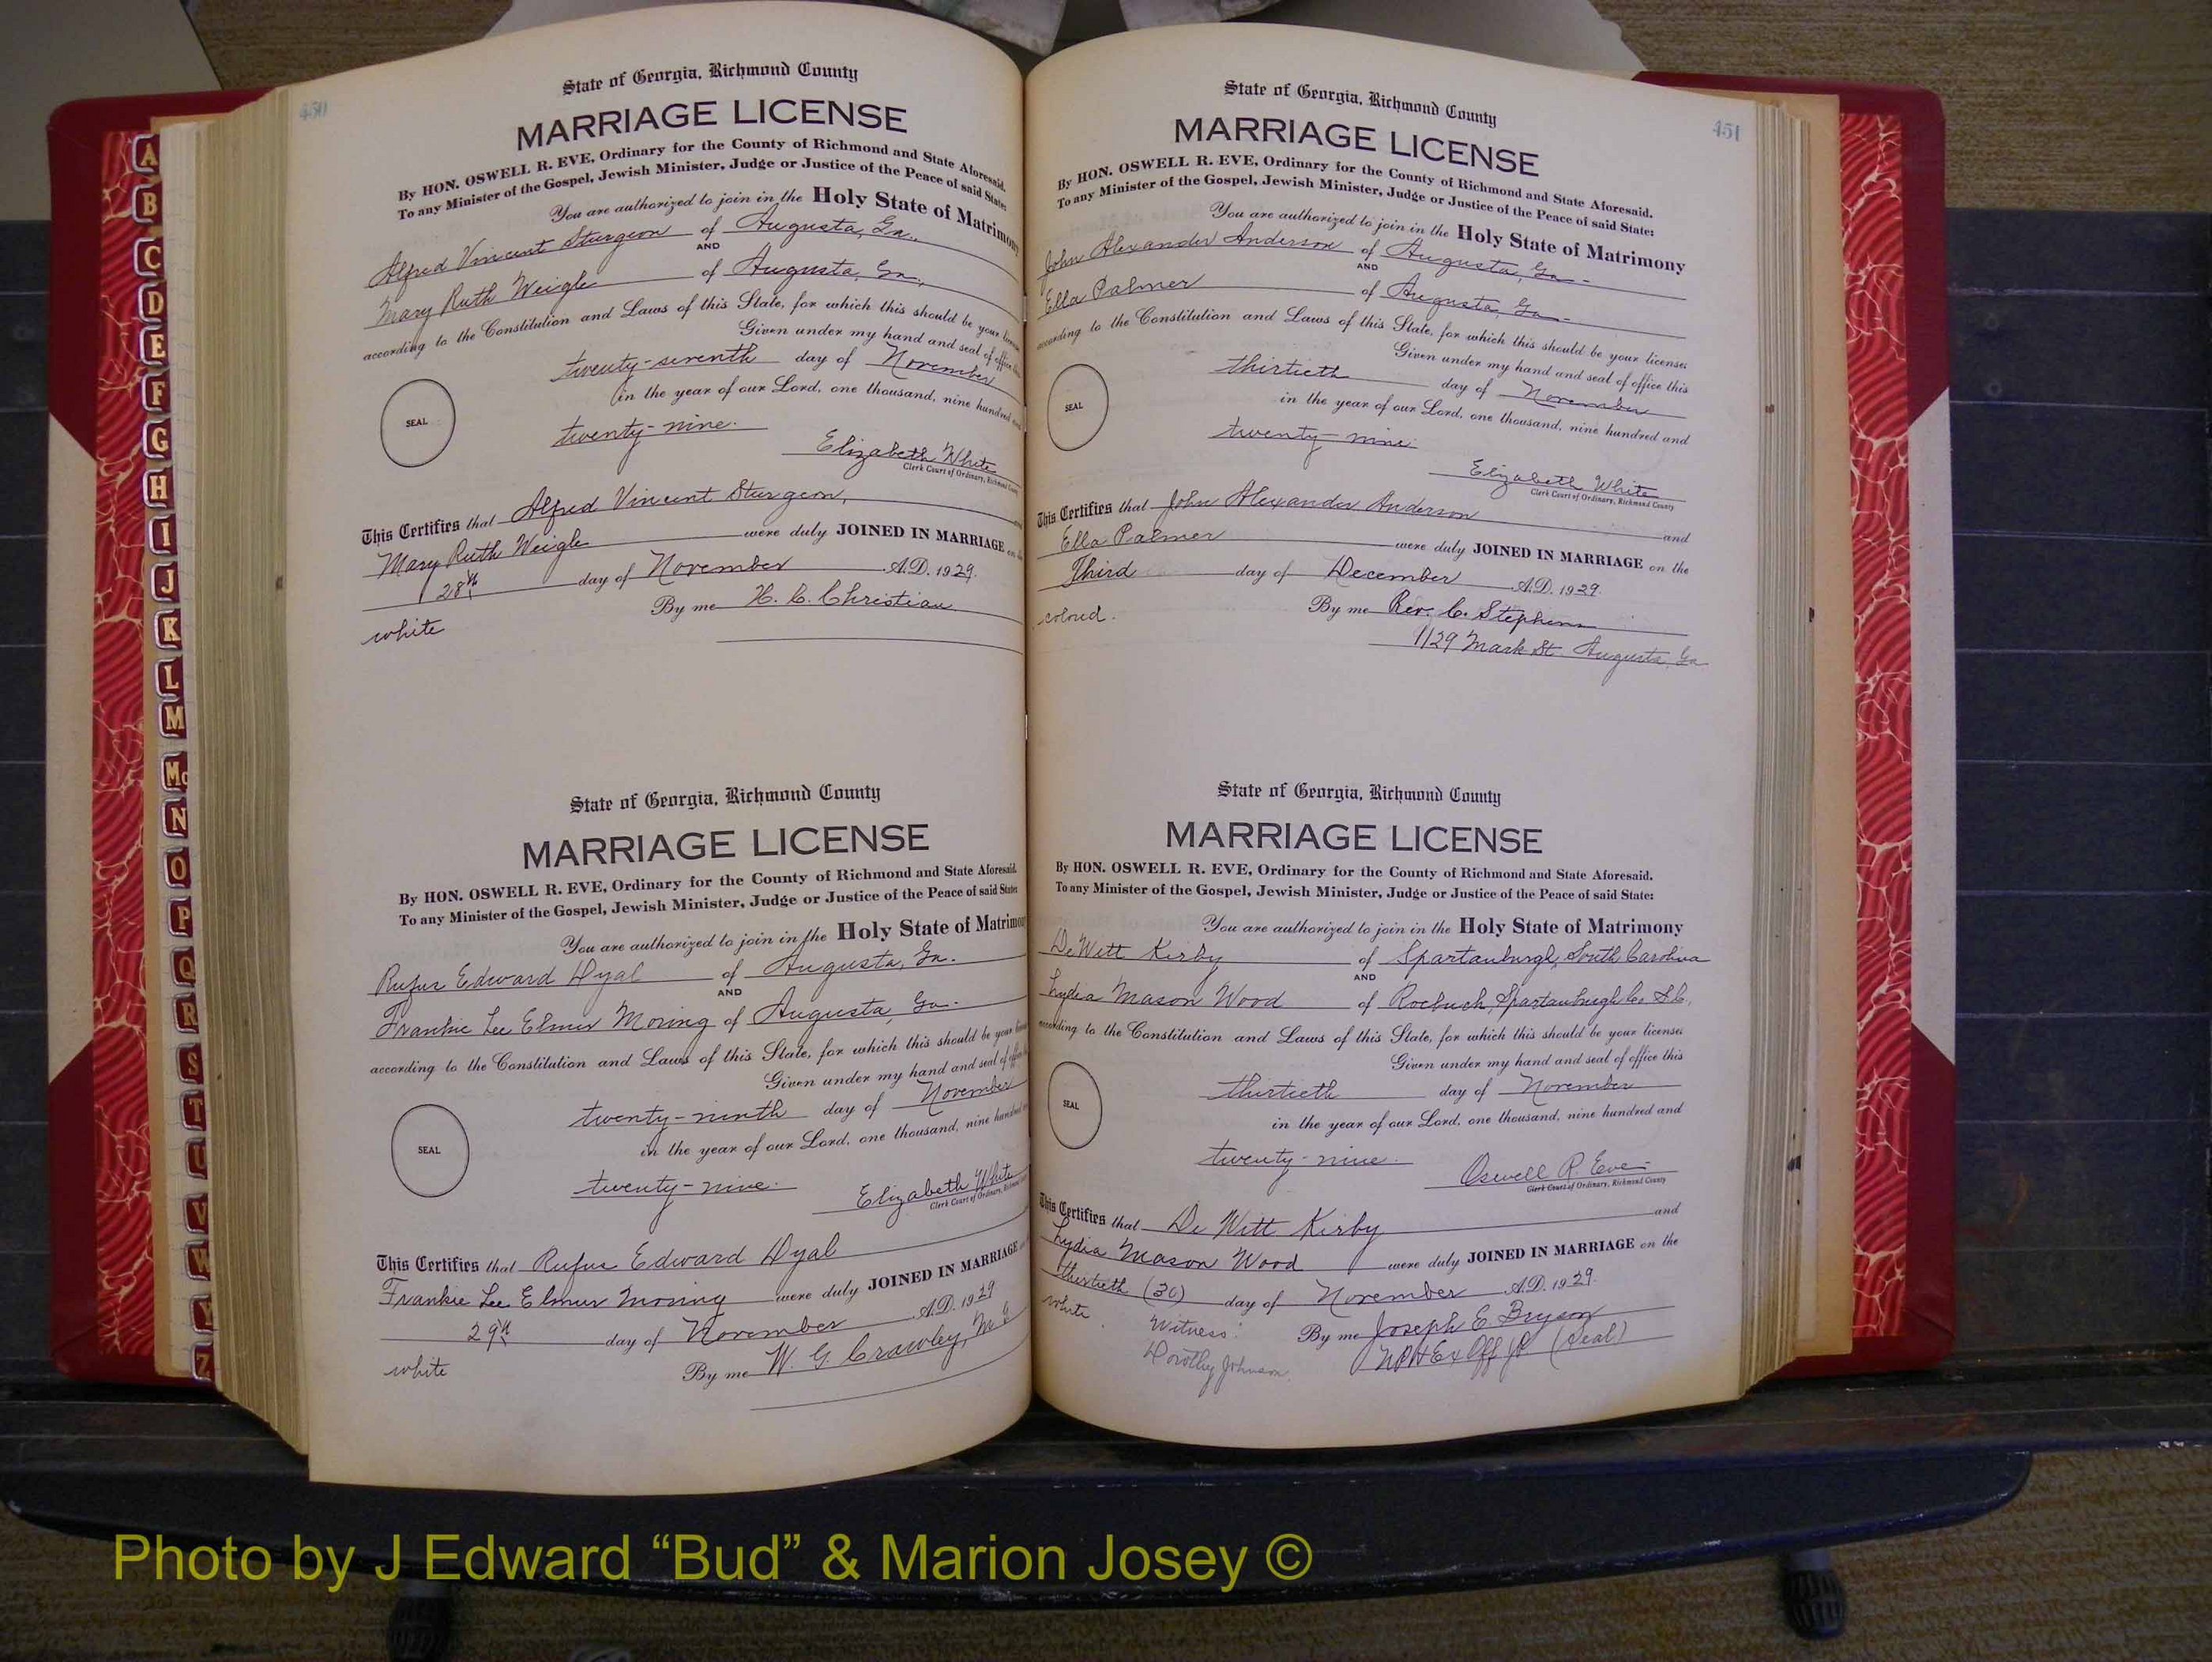 450
State of Georgia, Richmond County
MARRIAGE LICENSE
By HON. OSWELL R. EVE, Ordinary for the County of Richmond and State Aforesaid.
To any Minister of the Gospel, Jewish Minister, Judge or Justice of the Peace of said State:
You are authorized to join in the Holy State of Matrimony
Alfred Vincent Sturgeon of Augusta, Ga.
AND
Mary Ruth Weigle of Augusta, Ga.,
according to the Constitution and Laws of this State, for which this should be your
Given under my hand and seal of office
twenty-seventh day of November
in the year of our Lord, one thousand, nine hundred
SEAL
twenty-nine.
Elizabeth White
Clerk Court of Ordinary, Richmond County
This Certifies that Alfred Vincent Sturgeon,
Mary Ruth Weigle were duly JOINED IN MARRIAGE on
28th day of November A.D. 1929.
By me H. C. Christian
white
State of Georgia, Richmond County
MARRIAGE LICENSE
By HON. OSWELL R. EVE, Ordinary for the County of Richmond and State Aforesaid.
To any Minister of the Gospel, Jewish Minister, Judge or Justice of the Peace of said State:
You are authorized to join in the Holy State of Matrimony
Rufus Edward Dyal of Augusta, Ga.
AND
Frankie Lee Elmer Moring of Augusta, Ga.
according to the Constitution and Laws of this State, for which this should be your
Given under my hand and seal of
twenty-ninth day of November
in the year of our Lord, one thousand, nine hundred
SEAL
twenty-nine.
Elizabeth White
Clerk Court of Ordinary, Richmond
This Certifies that Rufus Edward Dyal
Frankie Lee Elmer Moring were duly JOINED IN MARRIAGE
29th day of November A.D. 1929
By me W. G. Crawley, M G
white
451
State of Georgia, Richmond County
MARRIAGE LICENSE
By HON. OSWELL R. EVE, Ordinary for the County of Richmond and State Aforesaid.
To any Minister of the Gospel, Jewish Minister, Judge or Justice of the Peace of said State:
You are authorized to join in the Holy State of Matrimony
John Alexander Anderson of Augusta, Ga-
AND
Ella Palmer of Augusta, Ga-
according to the Constitution and Laws of this State, for which this should be your licenses
Given under my hand and seal of office this
thirtieth day of November
in the year of our Lord, one thousand, nine hundred and
SEAL
twenty-nine.
Elizabeth White
Clerk Court of Ordinary, Richmond County
This Certifies that John Alexander Anderson and
Ella Palmer were duly JOINED IN MARRIAGE on the
Third day of December A.D. 1929.
By me Rev. C. Stephens
colored.
1129 Mark St. Augusta, Ga
State of Georgia, Richmond County
MARRIAGE LICENSE
By HON. OSWELL R. EVE, Ordinary for the County of Richmond and State Aforesaid.
To any Minister of the Gospel, Jewish Minister, Judge or Justice of the Peace of said State:
You are authorized to join in the Holy State of Matrimony
DeWitt Kirby of Spartanburgh, South Carolina
AND
Lydia Mason Wood of Roebuck, Spartanburgh Co. S.C.
according to the Constitution and Laws of this State, for which this should be your licenses
Given under my hand and seal of office this
thirtieth day of November
in the year of our Lord, one thousand, nine hundred and
SEAL
twenty-nine.
Oswell R. Eve
Clerk Court of Ordinary, Richmond County
This Certifies that De Witt Kirby and
Lydia Mason Wood were duly JOINED IN MARRIAGE on the
thirtieth (30) day of November A.D. 1929.
white. Witness: By me Joseph E Bryson
Dorothy Johnson. NP & Ex Off JP (Seal)
A
B
C
D
E
F
G
H
I
J
K
L
M
Mc
N
O
P
Q
R
S
T
U
V
W
Y
Z
Photo by J Edward “Bud” & Marion Josey ©